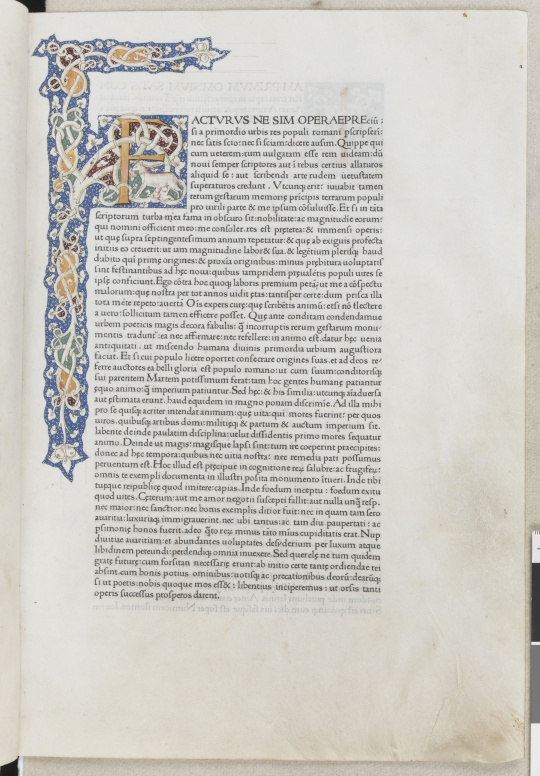 FACTVRVS NE SIM OPERAEPREciũ:
si a primordio urbis res populi romani pscripseri:
nec satis scio: nec si sciam: dicere ausim. Quippe qui
cum ueterem: tum uulgatam esse rem uideam: dũ
noui semper scriptores aut ĩ rebus certius allaturos
aliquid se: aut scribendi arte rudem uetustatem
superaturos credunt. Vtcunq; erit: iuuabit tamen
rerum gestarum memorię principis terrarum populi
pro uirili parte & me ipsum cõsuluisse. Et si in tãta
scriptorum turba mea fama in obscuro sit: nobilitate: ac magnitudĩe eorum:
qui nomini officient meo: me consoler. res est pręterea: & immensi operis:
ut quę supra septingentesimum annum repetatur: & quę ab exiguis profecta
initiis eo creuerit: ut iam magnitudine labor& sua. & legẽtium plerisq; haud
dubito qui primę origines: & proxĩa originibus: minus prębitura uoluptatis
sint festinantibus ad hęc noua: quibus iampridem pręualẽtis populi uires se
ipsę conficiunt. Ego cõtra hoc quoq; laboris premium petã: ut me a cõspectu
malorum: quę nostra per tot annos uidit ętas: tantisper certe: dum prisca illa
tota mẽte repeto: auertã Oĩs expers curę: quę scribẽtis animũ: etsi nõ flectere
a uero: sollicitum tamen efficere posset. Que ante conditam condendamue
urbem poeticis magis decora fabulis: q̃ incorruptis rerum gestarum monu-
mentis tradunt˜: ea nec affirmare: nec refellere: in animo est. datur hęc uenia
antiquitati. ut miscendo humana diuinis primordia urbium augustiora
faciat. Et si cui populo licere oportet consecrare origines suas. et ad deos re-
ferre auctores ea belli gloria est populo romano: ut cum suum: conditorisq;
sui parentem Martem potissimum ferat: tam hoc gentes humanę patiantur
equo animo: q̃ imperium patiuntur. Sed hęc: & his similia: utcunq; aĩaduersa
aut estimata erunt. haud equidem in magno ponam discrimĩe. Ad illa mihi
pro se quisq; acriter intendat animum: quę uita: qui mores fuerint: per quos
uiros. quibusq; artibus domi: militiq; & partum & auctum imperium sit.
labente deinde paulatim disciplina: uelut dissidentis primo mores sequatur
animo. Deinde ut magis: magisque lapsi sint: tum ire coeperint praecipites:
donec ad hęc tempora: quibus nec uitia nostra: nec remedia pati possumus
peruentum est. Hoc illud est pręcipue in cognitione reꝝ salubre: ac frugifeꝝ:
omnis te exempli documenta in illustri posita monumento ĩtueri. Inde tibi
tuęque reipublicę quod imitere: capias. Inde foedum inceptu: foedum exitu
quod uites. Cęterum: aut me amor negotii suscepti fallit: aut nulla unq̃ resp.
nec maior: nec sanctior: nec bonis exemplis ditior fuit: nec in quam tam sero
auaritia: luxuriaq; immigrauerint. nec ubi tantus: ac tam diu paupertati: ac
psimonię honos fuerit. adeo q̃to reꝝ minus tãto mius cupiditatis erat. Nup
diuitiae auaritiam: et abundantes uoluptates desyderium per luxum atque
libidinem pereundi: perdendiq; omnia inuexere. Sed querelę ne tum quidem
gratę futurę: cum forsitan necessarię erunt: ab initio certe tantę ordiendae rei
absint. cum bonis potius ominibus: uotisq; ac precationibus deorũ: dearũq;
si ut poetis: nobis quoque mos ess&: libentius inciperemus: ut orsis tanti
operis successus prosperos darent.